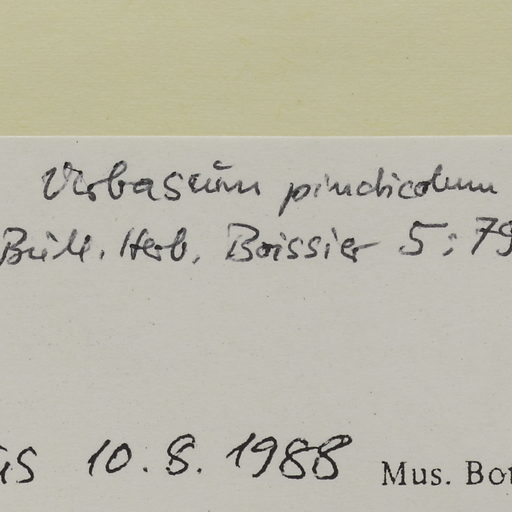 Verbascum pindicolum
Bull. Herb. Boissier 5: 79
10.8.1988 Mus. Bot